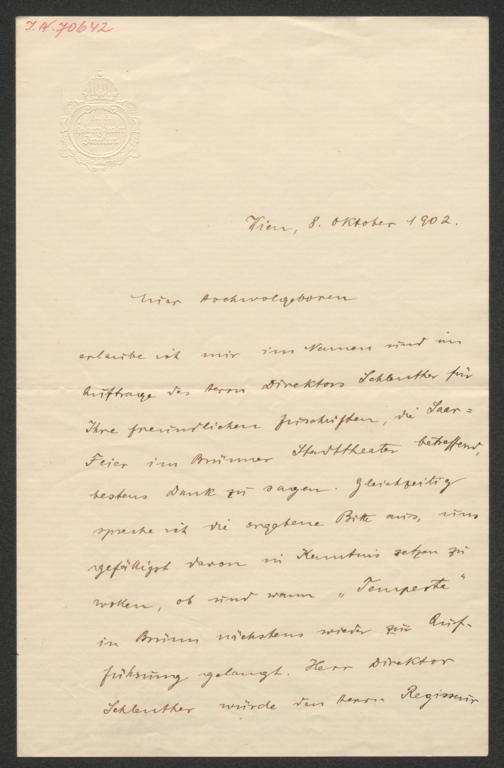 I. N. 70642
Wien, 8. Oktober 1902.
Euer Hochwolgeboren
erlaube ich mir im Namen und im
Auftrage des Herrn Direktors Schlenther für
Ihre freundlichen Zuschriften, die Saar=
Feier im Brünner Stadttheater betreffend,
bestens Dank zu sagen. Gleichzeitig
spreche ich die ergebene Bitte aus, uns
gefälligst davon in Kenntnis setzen zu
wollen, ob und wann „Tempesta“
in Brünn nächstens wieder zu Auf-
führung gelangt. Herr Direktor
Schlenther würde den Herrn Regisseur